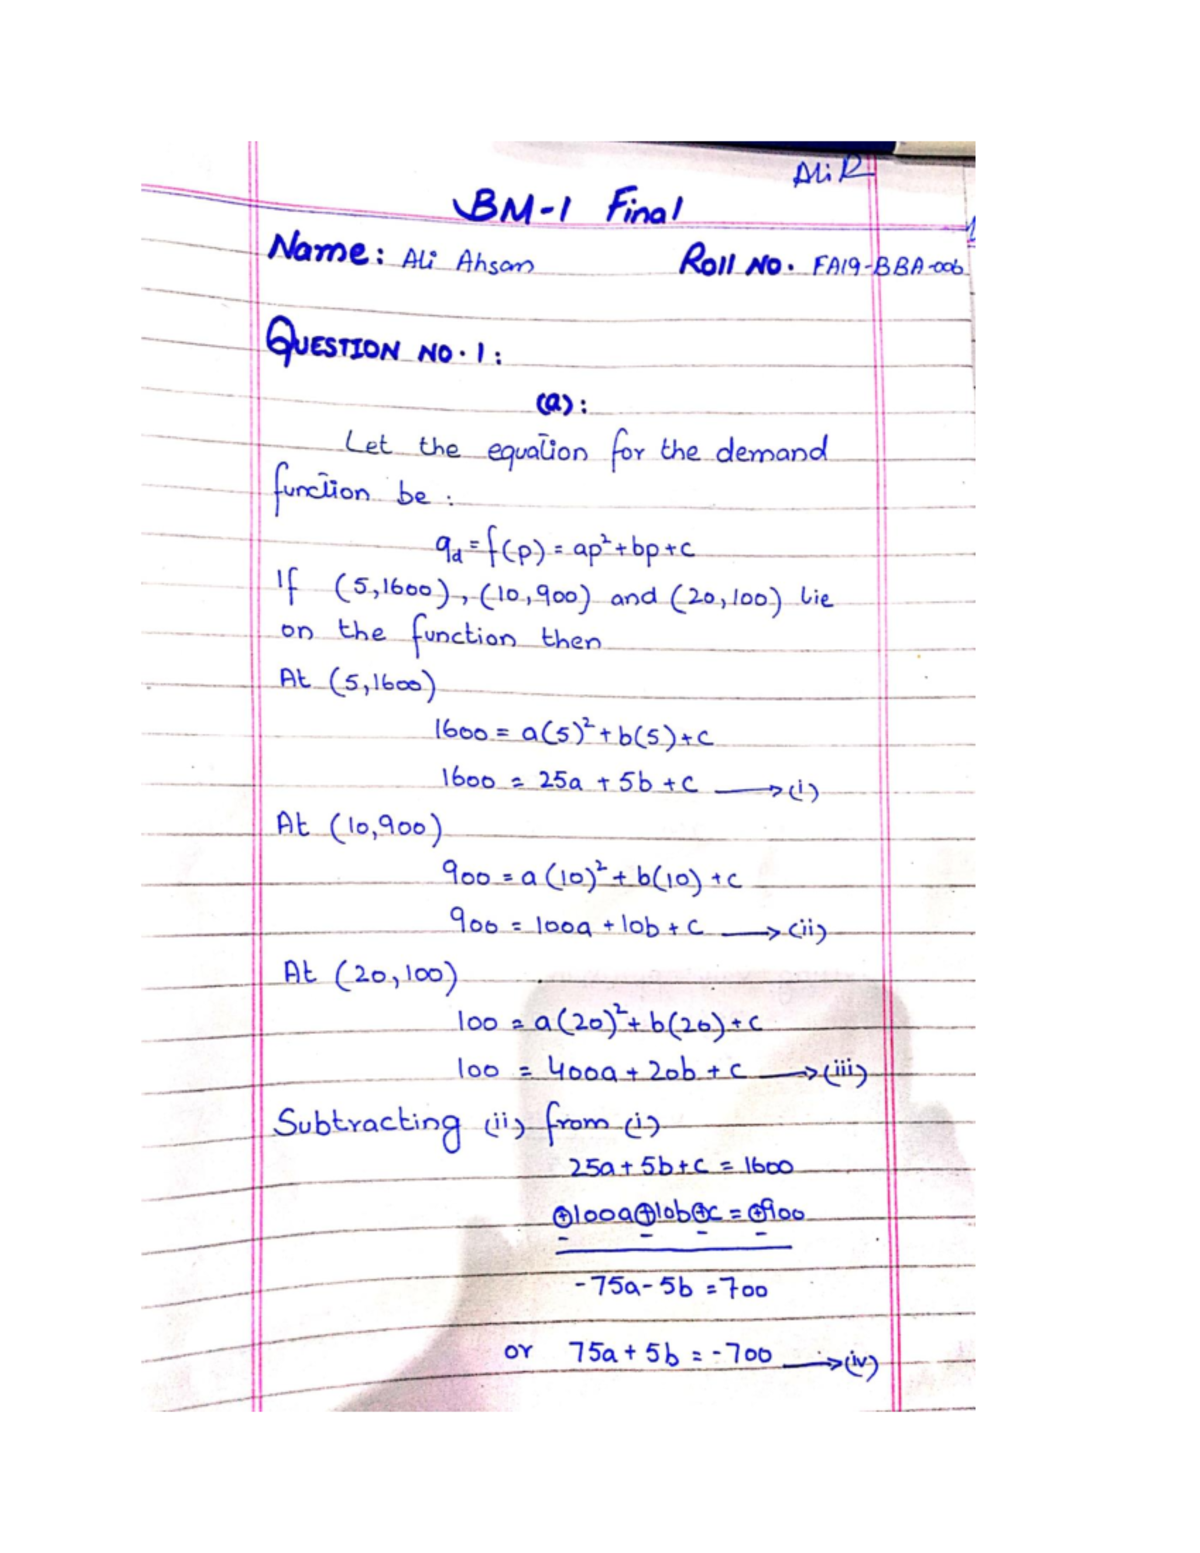 Ali R
BM-1 Final
1
Name: Ali Ahsan Roll No. FA19-BBA-006
QUESTION NO.1:
(a):
Let the equation for the demand
function be:
qd = f(p) = ap² + bp + c
If (5,1600), (10,900) and (20,100) lie
on the function then
At (5,1600)
1600 = a(5)² + b(5) + c
1600 = 25a + 5b + c → (i)
At (10,900)
900 = a(10)² + b(10) + c
900 = 100a + 10b + c → (ii)
At (20,100)
100 = a(20)² + b(20) + c
100 = 400a + 20b + c → (iii)
Subtracting (ii) from (i)
25a + 5b + c = 1600
⊕100a ⊕10b ⊕c = ⊕900
- - - -
-75a - 5b = 700
or 75a + 5b = -700 → (iv)